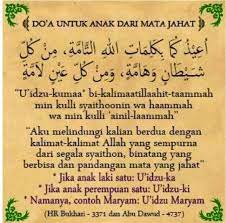 DO'A UNTUK ANAK DARI MATA JAHAT
أُعِيْذُكُمَا بِكَلِمَاتِ اللهِ التَّامَّةِ، مِنْ كُلِّ
شَيْطَانٍ وَهَامَّةٍ، وَمِنْ كُلِّ عَيْنٍ لَامَّةٍ
"U'idzu-kumaa' bi-kalimaatillaahit-taammah
min kulli syaithoonin wa haammah
wa min kulli 'ainil-laammah"
"Aku melindungi kalian berdua dengan
kalimat-kalimat Allah yang sempurna
dari segala syaithon, binatang yang
berbisa dan pandangan mata yang jahat"
* Jika anak laki satu: U'idzu-ka
* Jika anak perempuan satu: U'idzu-ki
* Namanya, contoh Maryam: U'idzu Maryam
(HR Bukhari - 3371 dan Abu Dawud - 4737)